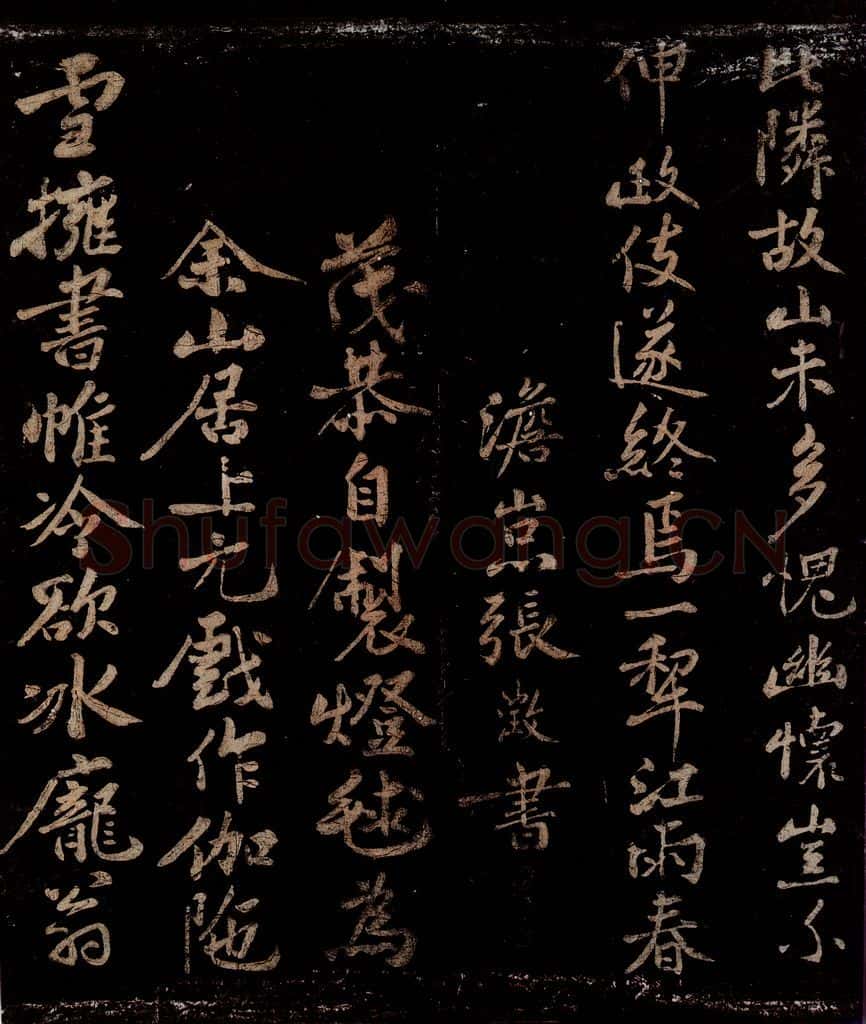 比隣故山未多愧幽懷豈不
伸政伎遂終焉一犁江雨春
澹嵓張澂書
茂恭自製燈毬為
余山居上元戲作伽陁
雪擁書帷冷欲冰龐翁
Shufawang.CN